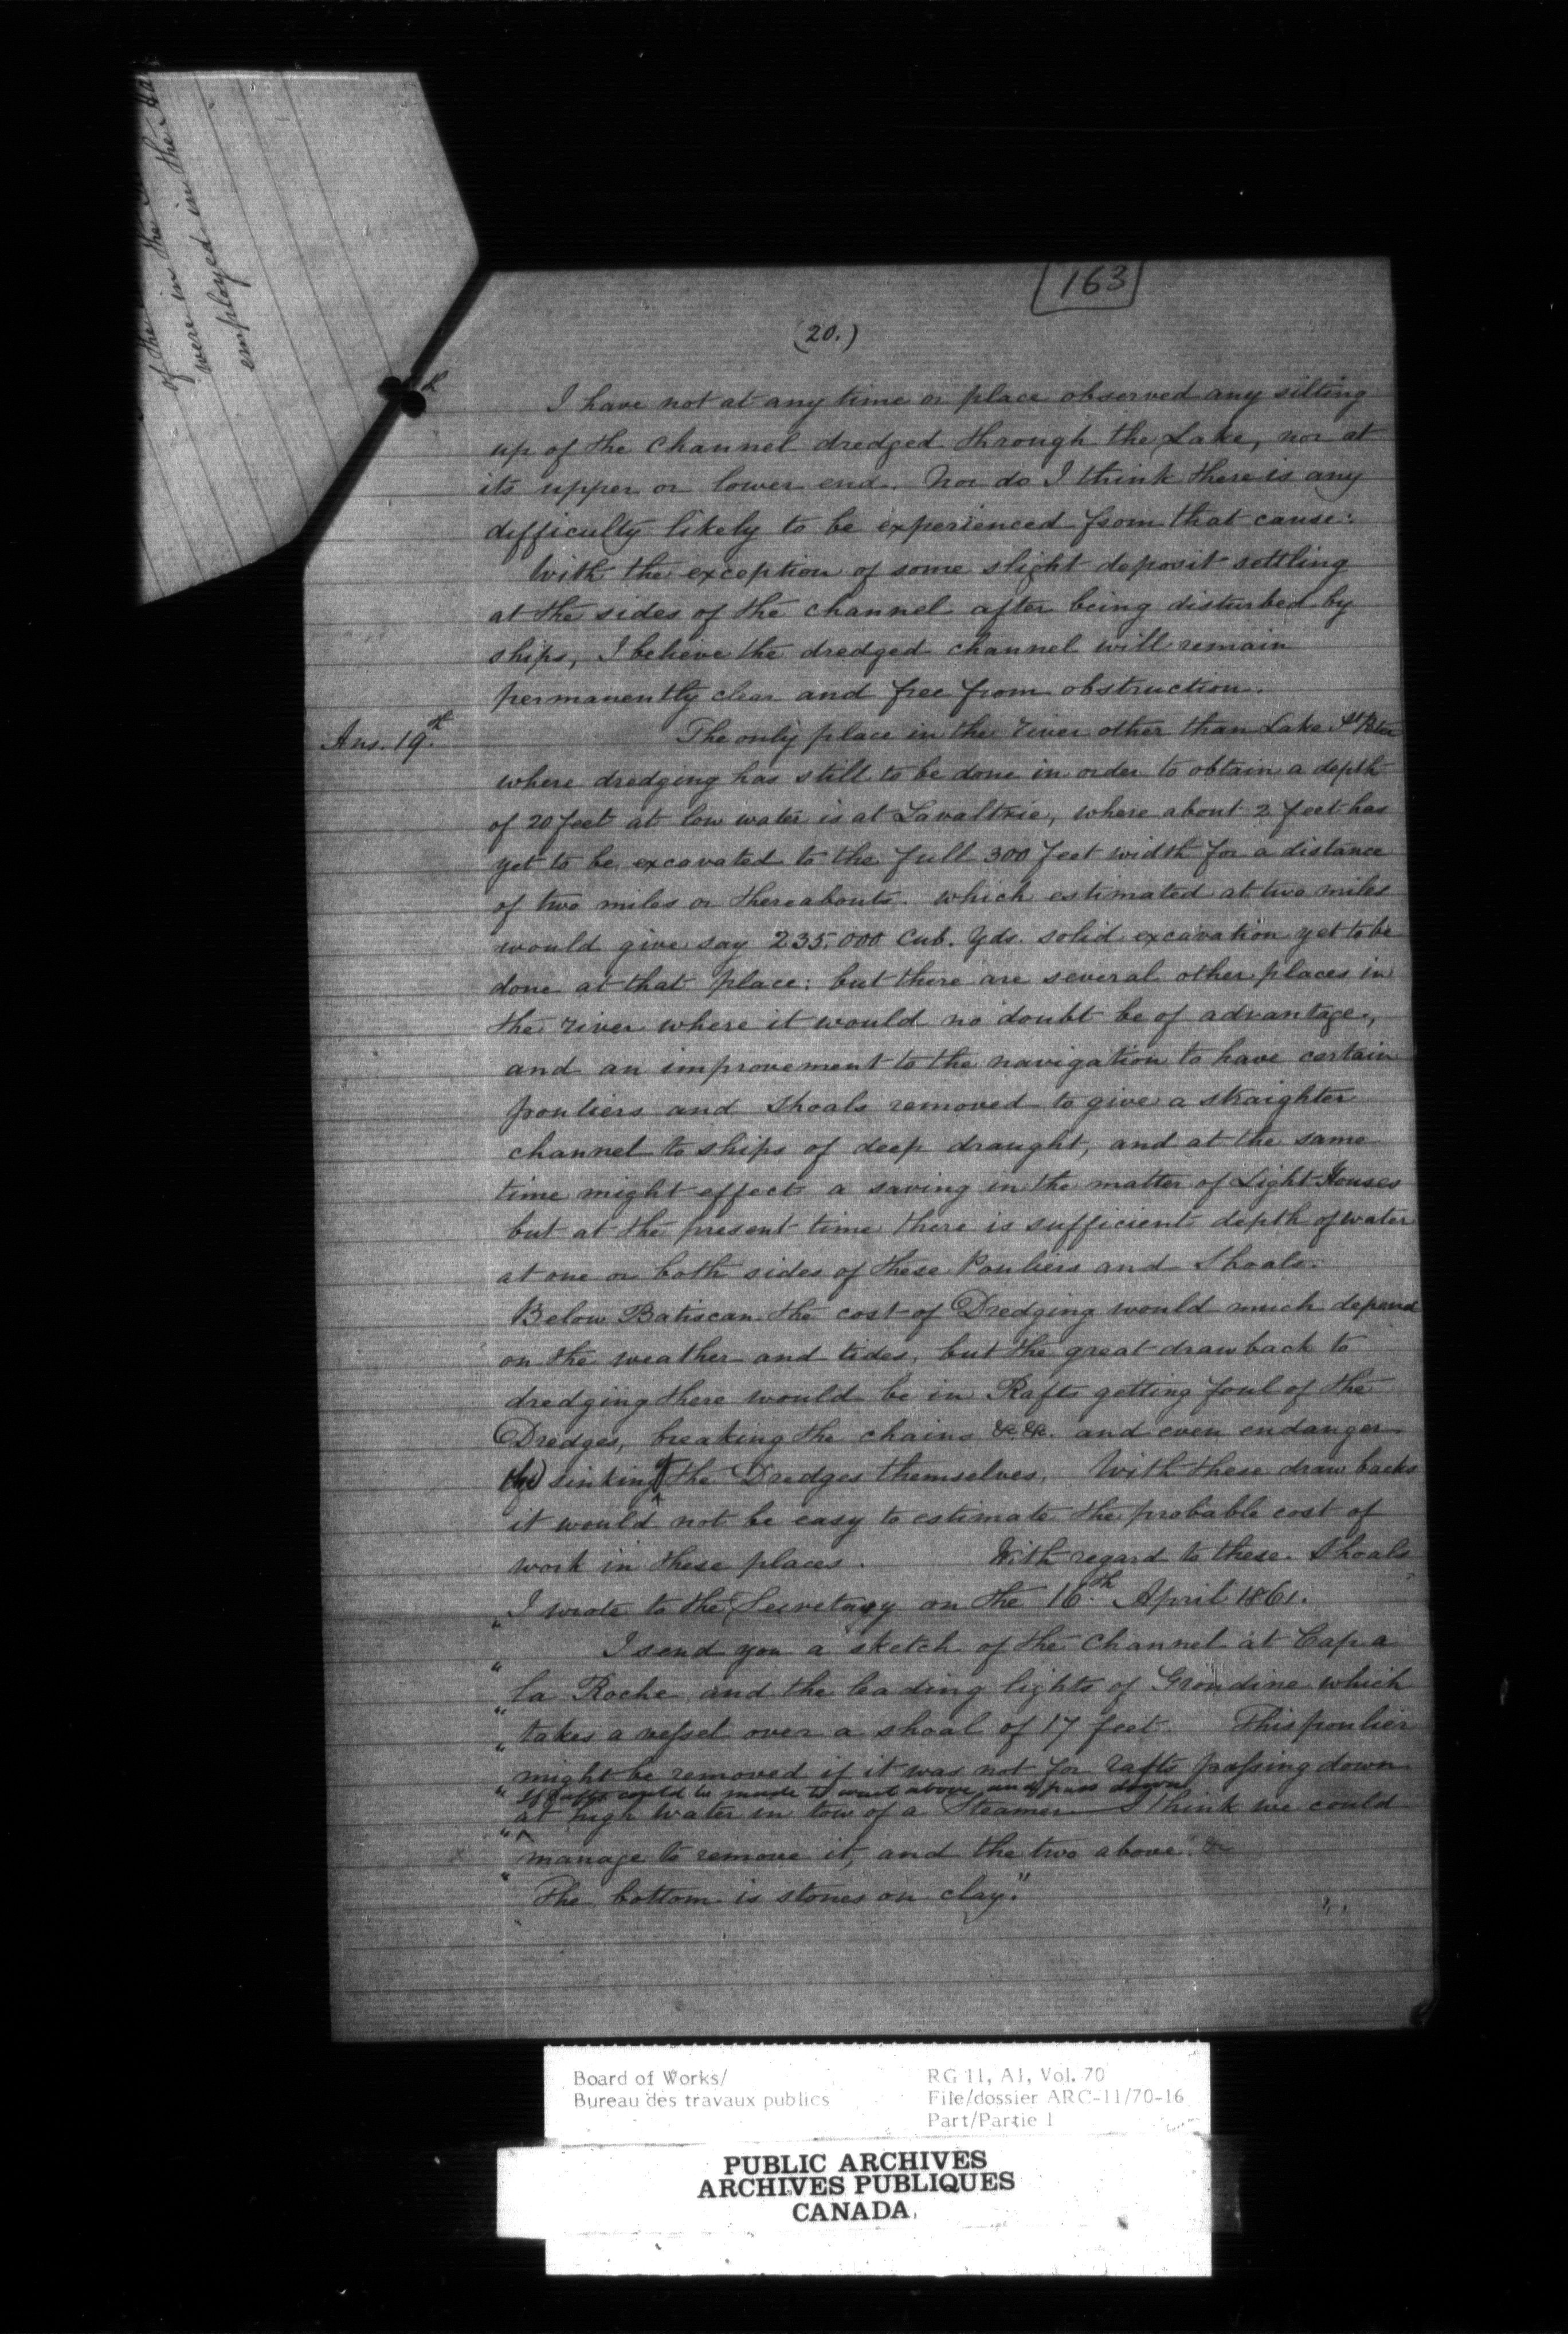 of the
were in the
employed in the
163
(20.)
I have not at any time or place observed any silting
up of the channel dredged through the Lake, nor at
its upper or lower end. Nor do I think there is any
difficulty likely to be experienced from that cause.
With the exception of some slight deposit settling
at the sides of the channel after being disturbed by
ships, I believe the dredged channel will remain
permanently clear and free from obstruction.
Ans. 19th The only place in the river other than Lake St Peter
where dredging has still to be done in order to obtain a depth
of 20 feet at low water is at Lavaltrie, where about 2 feet has
yet to be excavated to the full 300 feet width for a distance
of two miles or thereabouts. which estimated at two miles
would give say 235.000 Cub. Yds. solid excavation yet to be
done at that place; but there are several other places in
the river where it would no doubt be of advantage,
and an improvement to the navigation to have certain
pouliers and shoals removed to give a straighter
channel to ships of deep draught, and at the same
time might effect a saving in the matter of Light Houses
but at the present time there is sufficient depth of water
at one or both sides of these Pouliers and Shoals.
Below Batiscan the cost of Dredging would much depend
on the weather and tides, but the great drawback to
dredging there would be in Rafts getting foul of the
Dredges, breaking the chains &c. &c. and even endanger
sinking the Dredges themselves. With these draw backs
it would not be easy to estimate the probable cost of
work in these places. With regard to these Shoals
I wrote to the Secretary on the 16th April 1861.
" I send you a sketch of the Channel at Cap a
" la Roche and the leading lights of Grondine which
" takes a vessel over a shoal of 17 feet This poulier
" might be removed if it was not for rafts passing down
" If Rafts could be made to wait above and pass down
" at high water in tow of a Steamer I think we could
" manage to remove it, and the two above. &c
" The bottom is stones on clay."
Board of Works/
Bureau des travaux publics
RG 11, A1, Vol. 70
File/dossier ARC-11/70-16
Part/Partie 1
PUBLIC ARCHIVES
ARCHIVES PUBLIQUES
CANADA